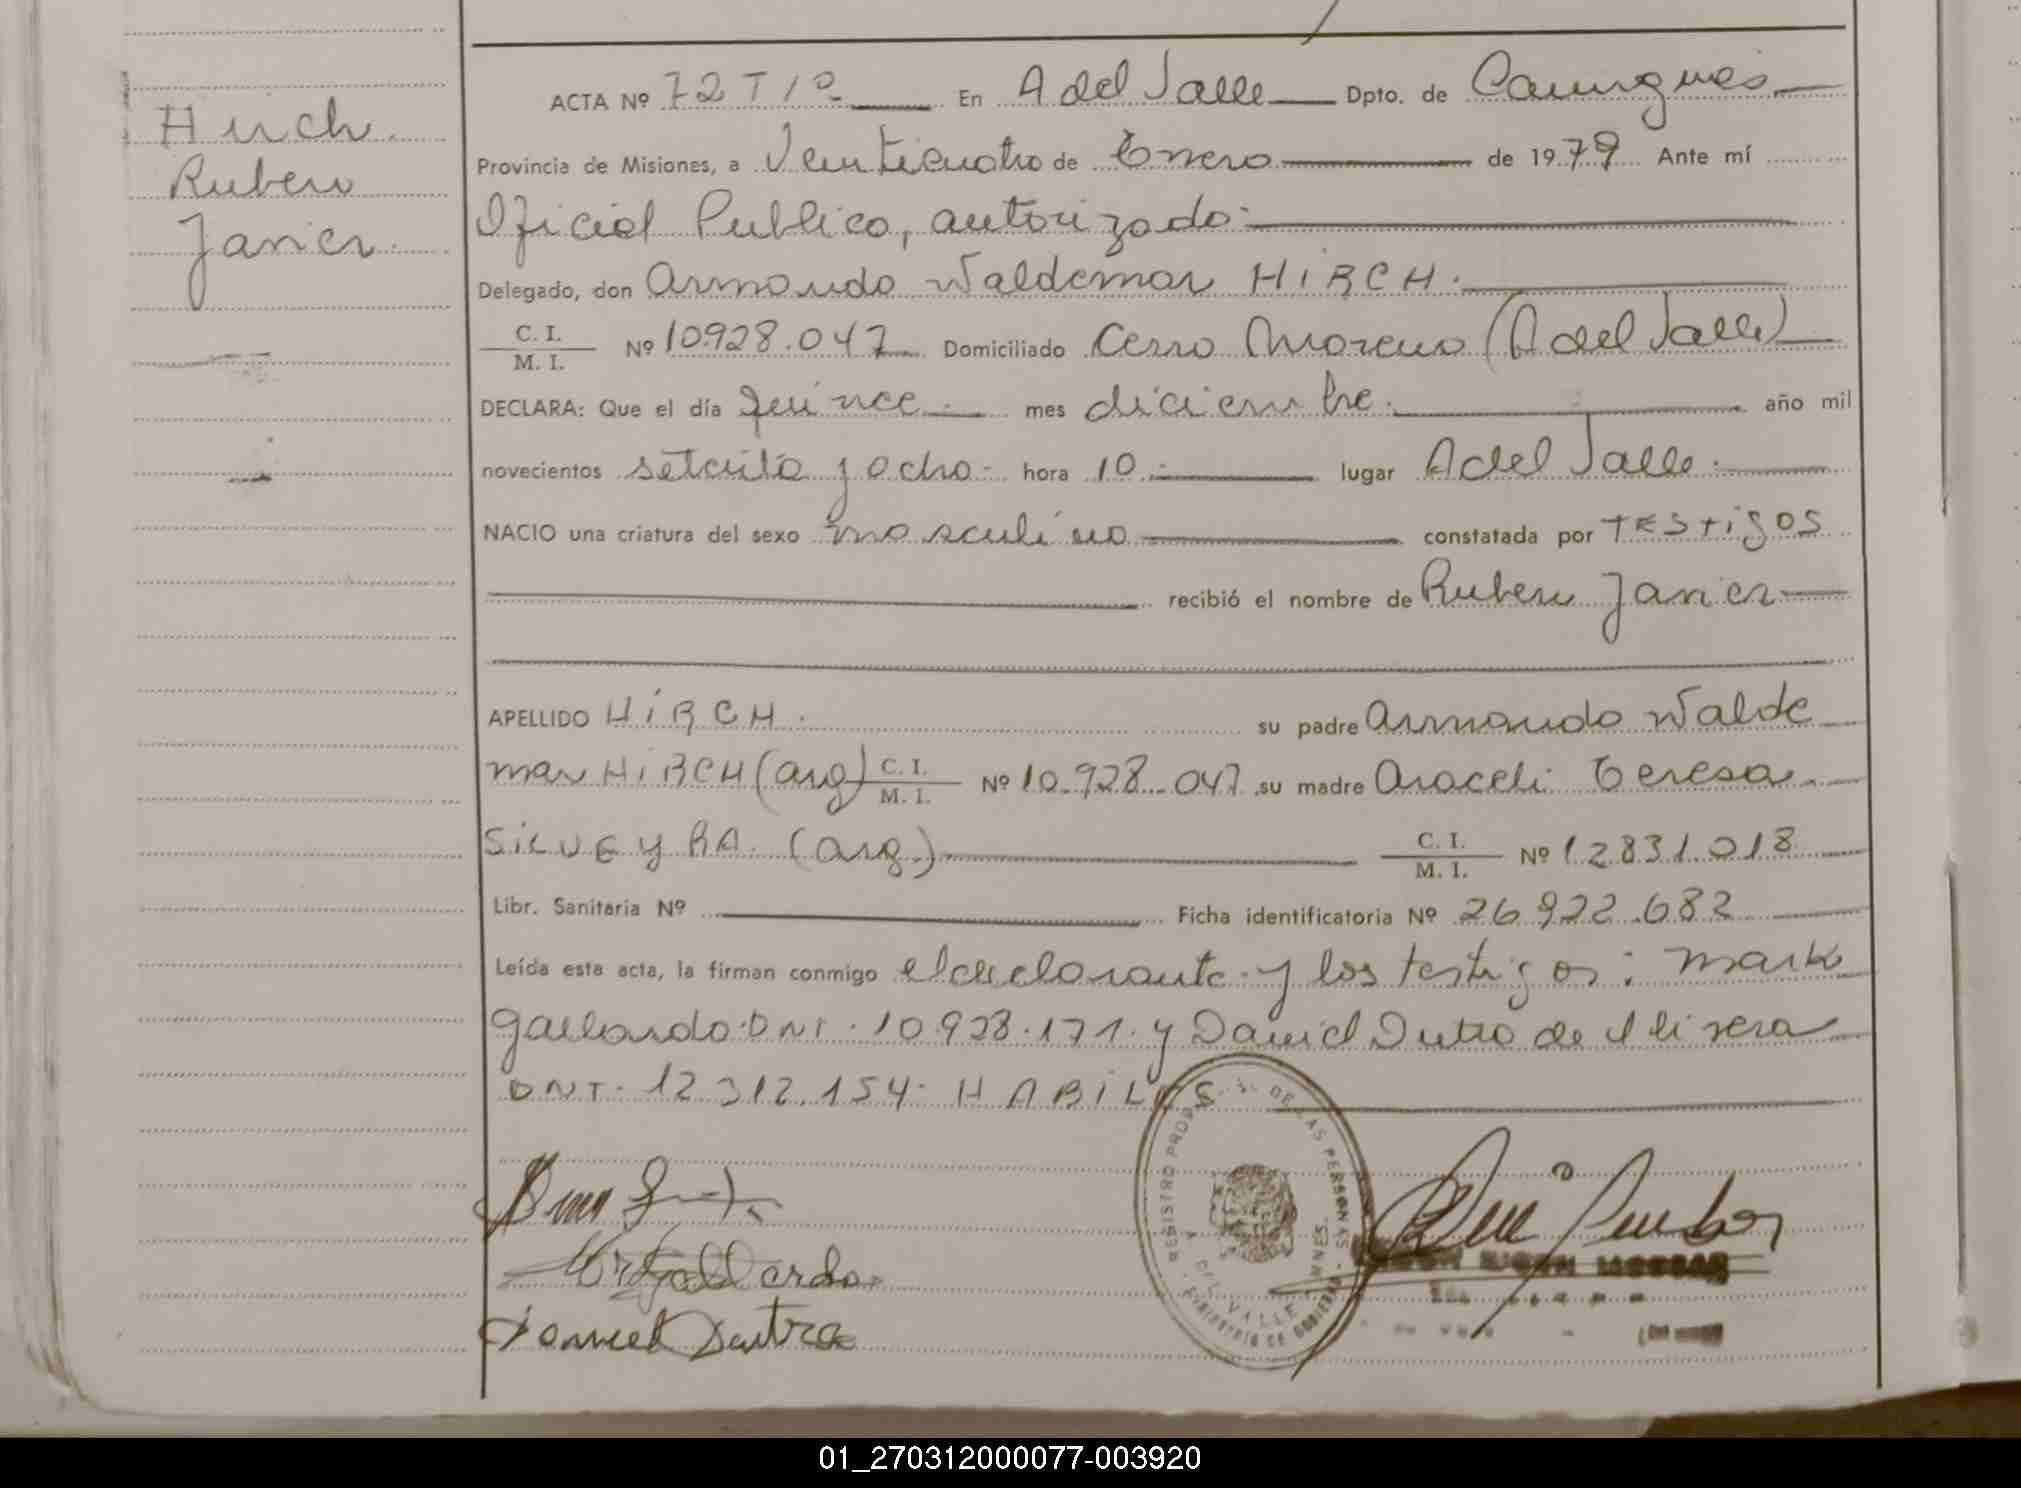 Hirch
Ruben
Javier
ACTA Nº 72 T 1º En A del Valle Dpto. de Cainguas
Provincia de Misiones, a Veinticuatro de Enero de 1979 Ante mí
Oficial Publico, autorizado
Delegado, don Armando Waldemar HiRCH.
C. I.
M. I. Nº 10.928.047 Domiciliado Cerro Moreno (A del Valle)
DECLARA: Que el día quince mes diciembre. año mil
novecientos setenta y ocho hora 10 lugar A del Valle.
NACIO una criatura del sexo masculino constatada por TESTigOS
recibió el nombre de Ruben Javier
APELLIDO HiRCH. su padre Armando Walde
mar HiRCH (arg) C. I.
M. I. Nº 10.928.047 su madre Araceli Teresa
SiLVEyRA. (arg.) C. I.
M. I. Nº 12831.018
Libr. Sanitaria Nº Ficha identificatoria Nº 26.922.682
Leída esta acta, la firman conmigo el declarante y los testigos: Mario
Gallardo. DNI. 10.928.171. y Daniel Dutra de Olivera
DNI. 12.312.154. HABiLES
REGISTRO PROV. DE LAS PERSONAS
A. DEL VALLE MNES.
MINISTERIO DE GOBIERNO
Gallardo
Daniel Dutra
01_270312000077-003920